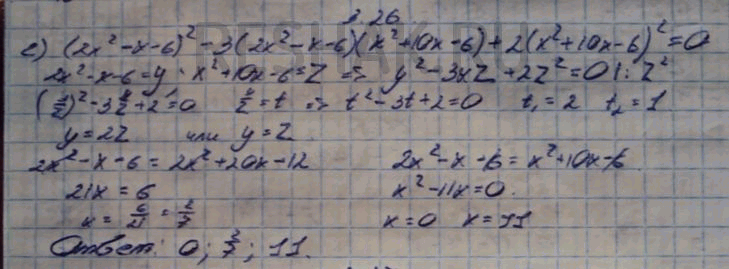 3.26
RESHAK.RU
е) (2x² - x - 6)² - 3(2x² - x - 6)(x² + 10x - 6) + 2(x² + 10x - 6)² = 0
2x² - x - 6 = y ; x² + 10x - 6 = Z => y² - 3yZ + 2Z² = 0 | : Z²
(y/z)² - 3 y/z + 2 = 0 y/z = t => t² - 3t + 2 = 0 t₁ = 2 t₂ = 1
y = 2Z или y = Z
2x² - x - 6 = 2x² + 20x - 12 2x² - x - 6 = x² + 10x - 6
21x = 6 x² - 11x = 0.
x = 6/21 = 2/7 x = 0 x = 11
Ответ: 0; 2/7; 11.